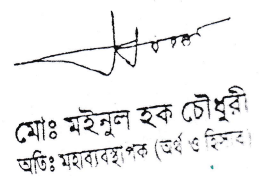 মোঃ মইনুল হক চৌধুরী
অতিঃ মহাব্যবস্থাপক (অর্থ ও হিসাব)